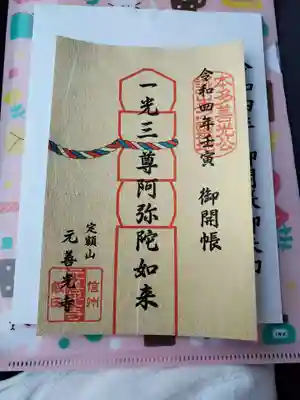 本多善光公
令和四年壬寅 御開帳
一光三尊阿弥陀如来
定額山
元善光寺
信州